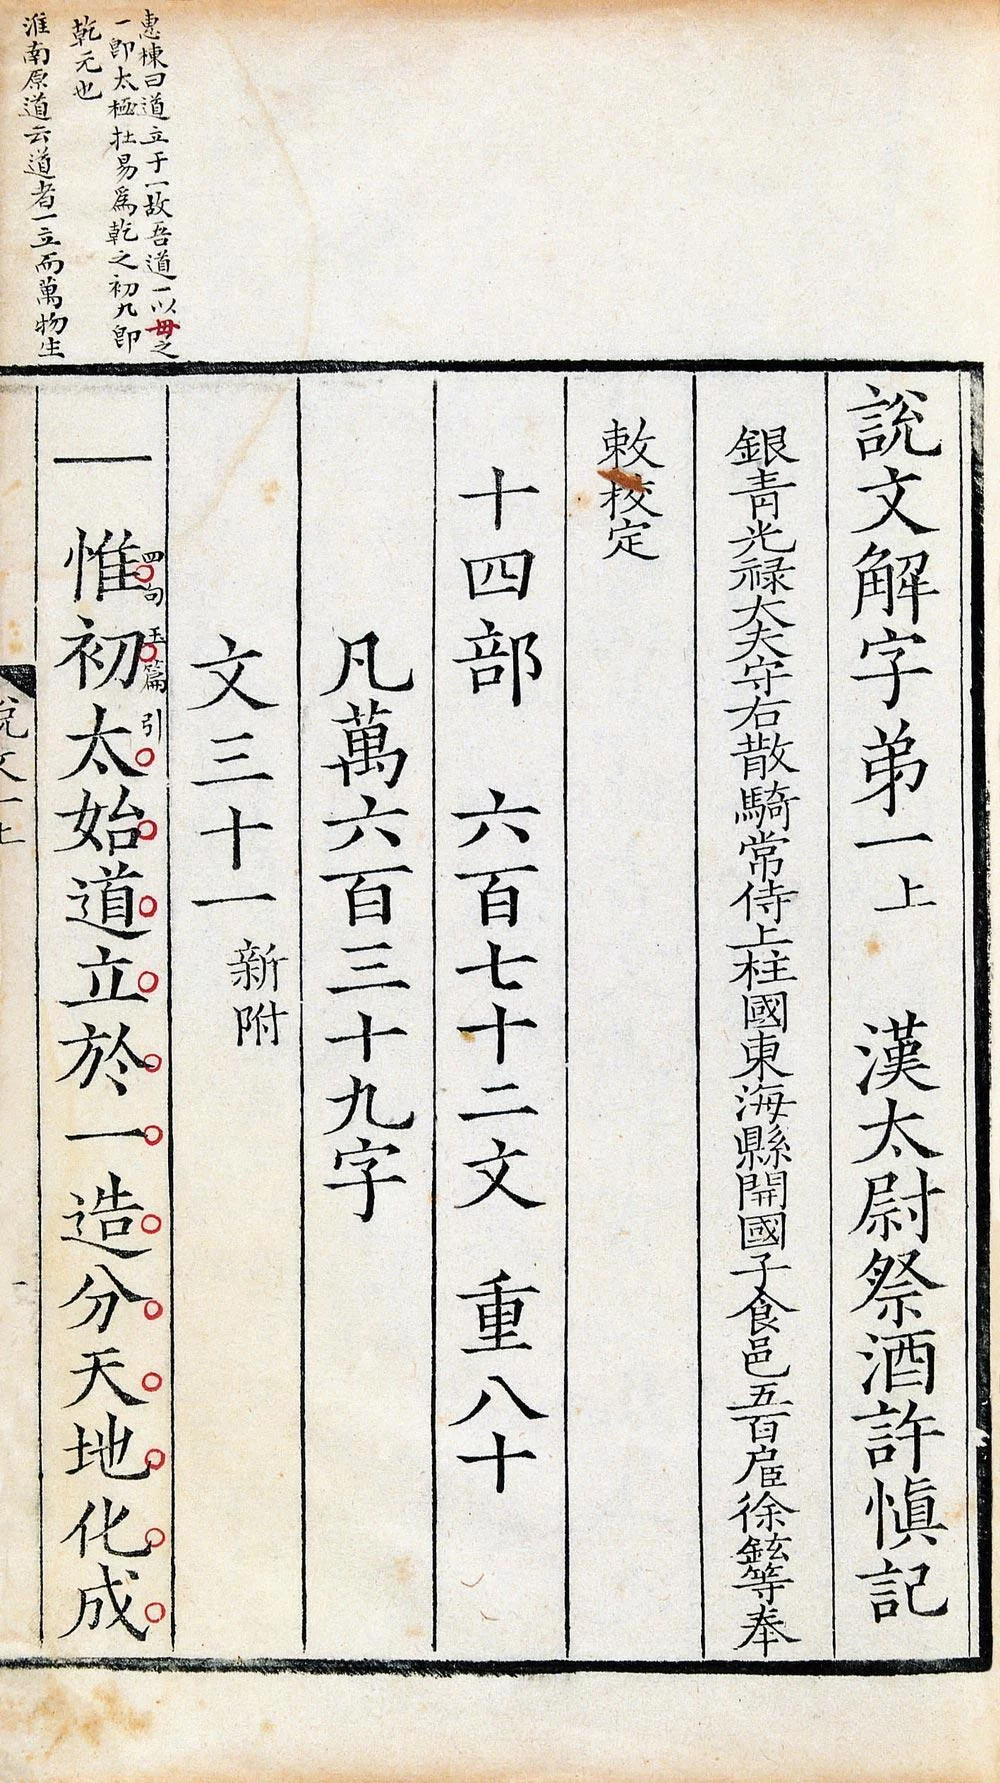 惠棟曰道立于一故吾道一以毌之
一即太極在易爲乾之初九即
乾元也
淮南原道云道者一立而萬物生
説文解字弟一上　漢太尉祭酒許愼記
銀青光禄大夫守右散騎常侍上柱國東海縣開國子食邑五百户臣徐鉉等奉
敕校定
十四部　六百七十二文　重八十
凡萬六百三十九字
文三十一新附
四句玉篇引
一惟初太始道立於一造分天地化成
説文一上